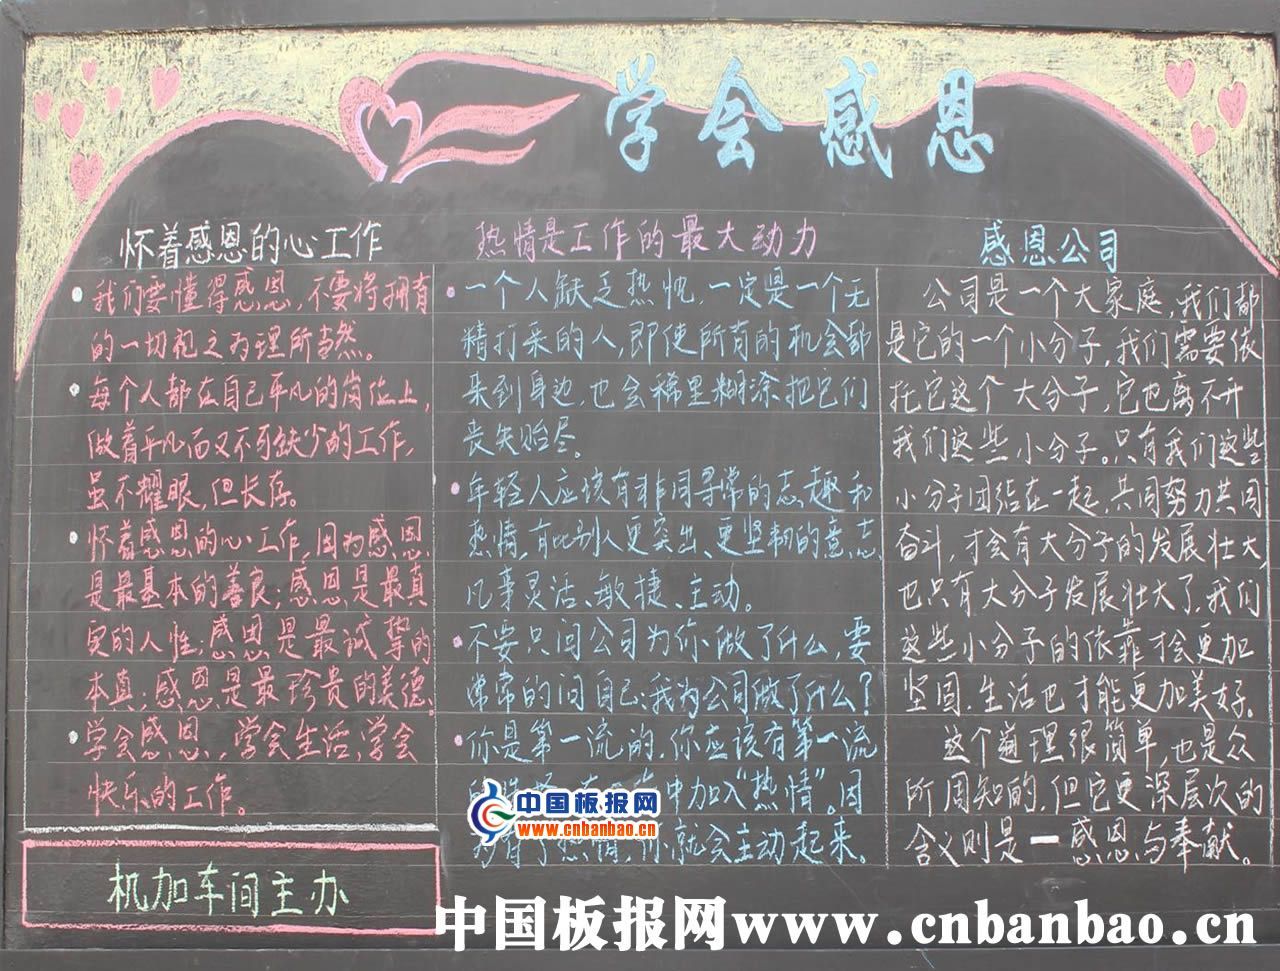 学会感恩
怀着感恩的心工作
我们要懂得感恩,不要将拥有
的一切视之为理所当然。
每个人都在自己平凡的岗位上,
做着平凡而又不可缺少的工作,
虽不耀眼,但长存。
怀着感恩的心工作,因为感恩
是最基本的善良;感恩是最真
实的人性;感恩是最诚挚的
本真;感恩是最珍贵的美德、
学会感恩、学会生活,学会
快乐的工作。
机加车间主办
热情是工作的最大动力
一个人缺乏热忱,一定是一个无
精打采的人,即使所有的机会都
来到身边,也会稀里糊涂把它们
丧失贻尽。
年轻人应该有非同寻常的志趣和
热情,有比别人更突出、更坚韧的意志
凡事灵活、敏捷、主动。
不要只问公司为你做了什么,要
常常的问自己:我为公司做了什么?
你是第一流的,你应该有第一流
中加入“热情”。因
为有了热情,你就会主动起来。
感恩公司
公司是一个大家庭,我们都
是它的一个小分子,我们需要依
托它这个大分子,它也离不开
我们这些小分子。只有我们这些
小分子团结在一起,共同努力共同
奋斗,才会有大分子的发展壮大,
也只有大分子发展壮大了,我们
这些小分子的依靠才会更加
坚固,生活也才能更加美好。
这个道理很简单,也是众
所周知的,但它更深层次的
含义则是一感恩与奉献。
中国板报网
www.cnbanbao.cn
中国板报网www.cnbanbao.cn